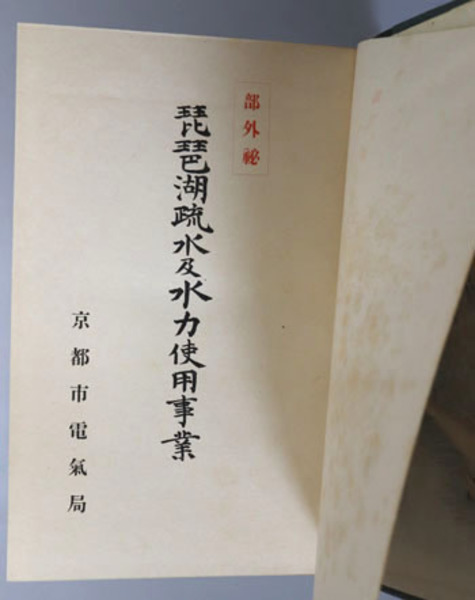 部外祕
琵琶湖疏水及水力使用事業
京都市電氣局